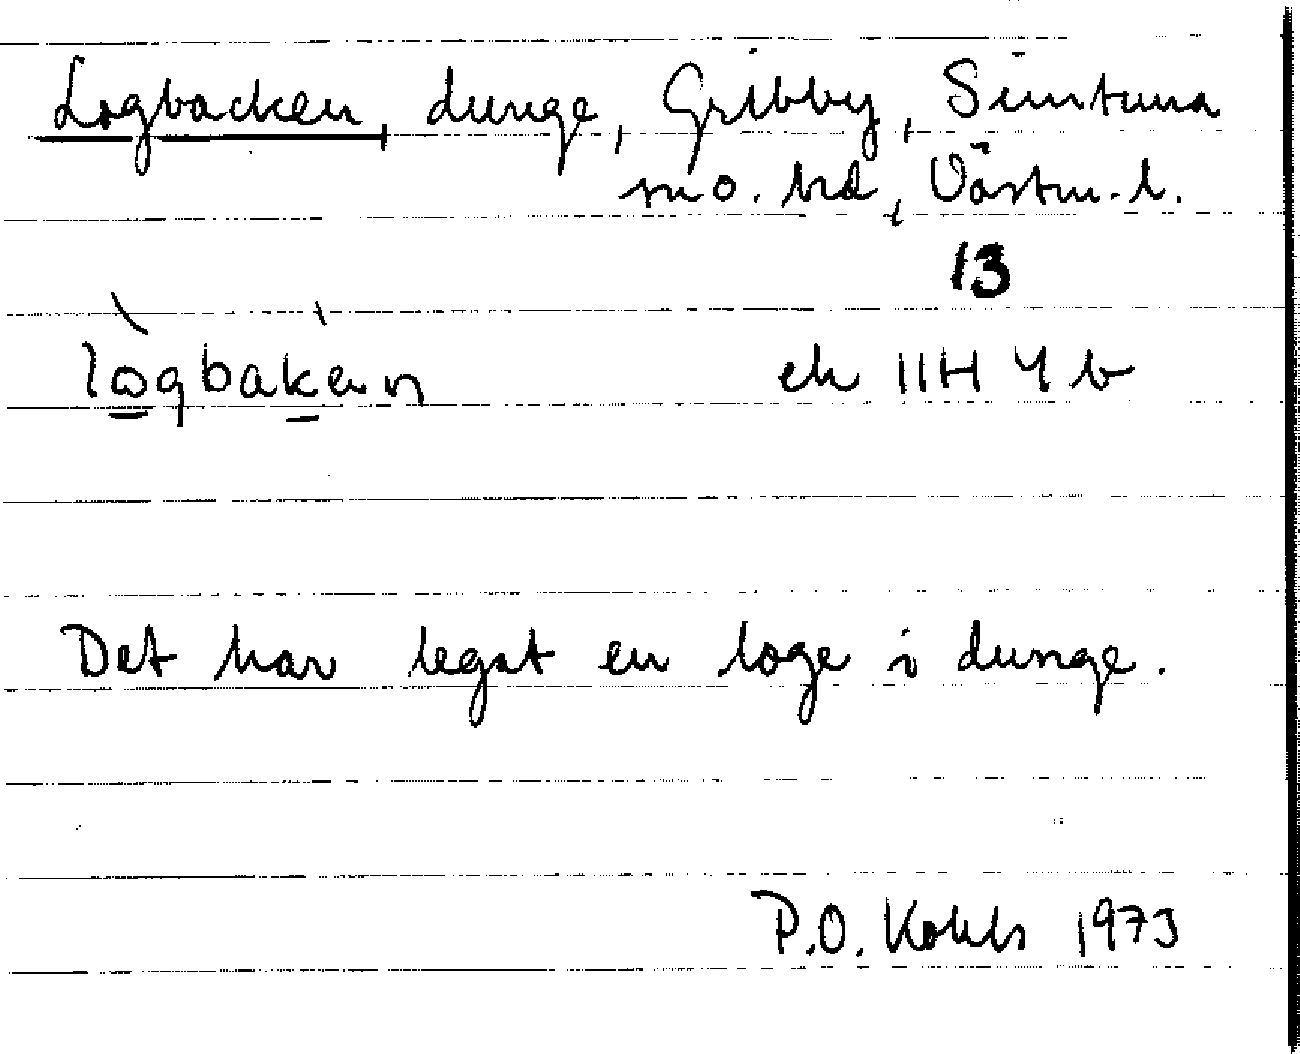 Logbacken, dunge, Gribby, Simtuna
sn o. hd, Västm. l.
13
lo̲gbak̲ən ek 11H 4 b
Det har legat en loge i dunge.
P.O. 1973